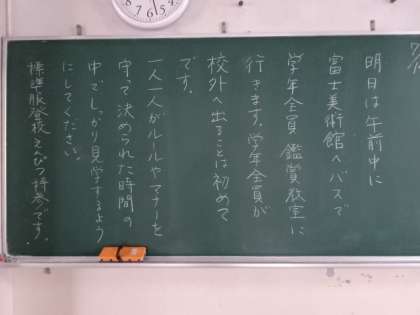 明日は午前中に
富士美術館へバスで
学年全員 鑑賞教室に
行きます。学年全員が
校外へ出ることは初めて
です。
一人一人がルールやマナーを
守って決められた時間の
中でしっかり見学するよう
にしてください。
標準服登校 えんぴつ持参です。